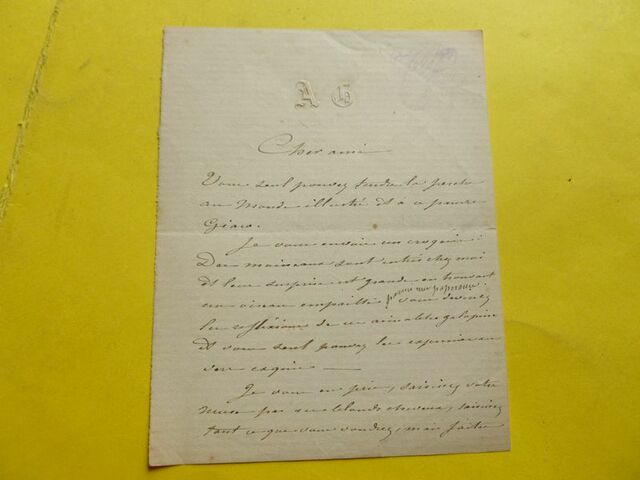 A G
Cher ami
Vous seul pouvez rendre la parole
au Monde illustré et à ce pauvre
Giaco.
Je vous envoie un croquis :
Des moineaux sont entrés chez moi
et leur surprise est grande en trouvant
un oiseau empaillé vous devinez
les réflexions de ces aimables galopins
et vous seul pouvez les exprimer en
vers exquis —
Je vous en prie, saisissez votre
muse par ses blonds cheveux, saisissez
tout ce que vous voudrez, mais faites